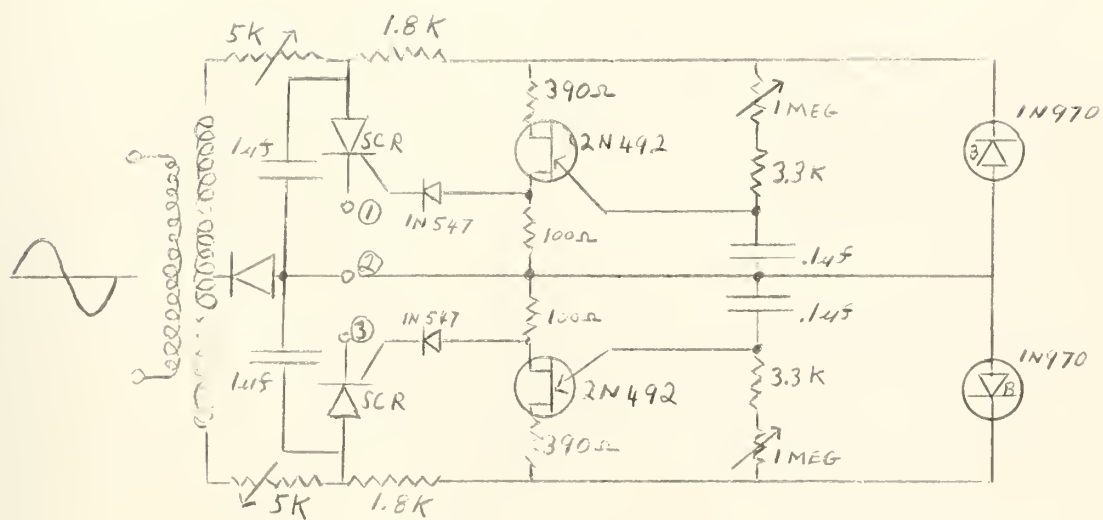 5K
1.8K
390Ω
1 MEG
1N970
1µf
SCR
2N492
3
3.3K
1
1N547
100Ω
.1µf
2
3
1N547
100Ω
.1µf
1N970
1µf
SCR
2N492
3.3K
B
390Ω
1 MEG
5K
1.8K